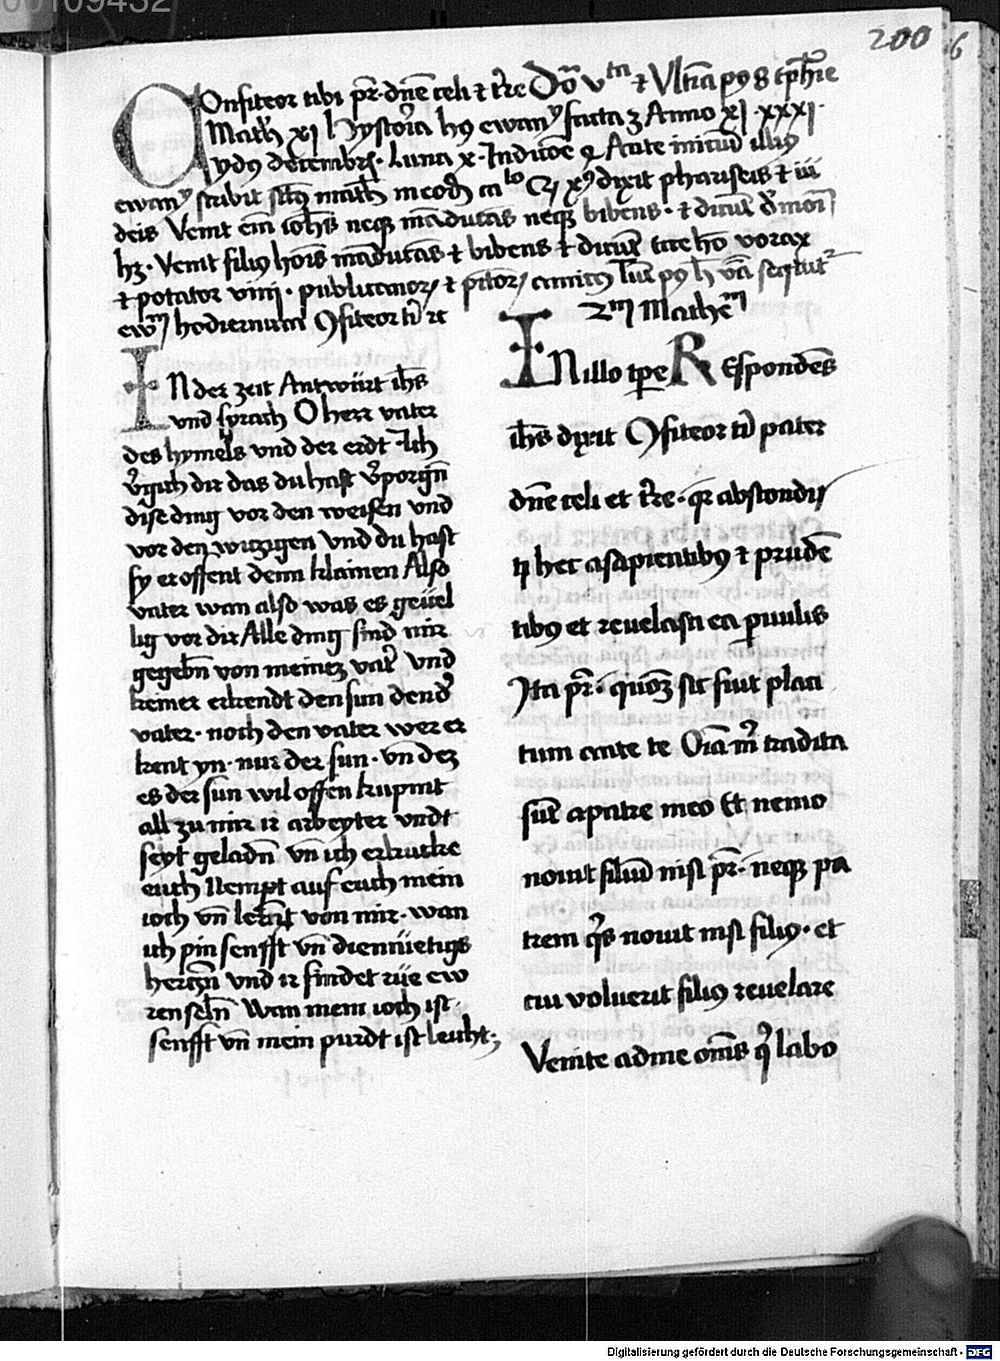 00109432
200 6
Confiteor tibi pr̄ dn̄e celi et t̄re Dō vtm et Vltīa pꝰ 8 ep̄hīe
Math xj Hystoria hꝰ ewany̅ facta Anno xj xxxj
ydꝰ decembrs. luna x. Ante initiū illiꝰ
ewany̅ scribit math xp̄ꝰ dixit phariseis et
deis Venit em̄ ioh̄s neqꝫ māducās neqꝫ bibens. et dicūt
hꝫ. Venit filiꝰ hoīs māducās et bibens et dicūt ecce ho vorax
et potator vini. publicanorꝫ et amicꝰ seqitur
ew hodiernum ꝯfiteor ti
2m Mathem
In der zeit Antwürt ih̄s
vnd sprach O herr vater
des hymels vnd der erdt Ich
v̄gich dir das du hast v̄porgn̄
dise ding vor den weisen vnd
vor den witzigen vnd du hast
sy eroffent denn klainen Also
vater wan also was es geuel
lig vor dir Alle ding sind mir
gegebn̄ von meinez vat̄ vnd
kemer erkendt den sun denḍ
vater. noch den vater wer er
kent yn. nur der sun. vn̄ dez
es der sun wil offen kupmt
all zu mir ir arbeyter vndt
seyt geladn̄ vn̄ ich erkucke
euch Nempt auf euch mein
ioch vn̄ lernt von mir. wan
ich pin sensft vn̄ diemüetigs
hertzn̄ vnd ir findet rüe ew
ren seln̄ Wan mein ioch ist
senfft vn̄ mein purdt ist leicht;
In illo tp̄e Respondēs
ih̄s dixit ꝯfiteor ti pater
dn̄e celi et t̄re. qr abscondis
ti hec a sapientibꝰ et prudē
tibꝰ et reuelasti ea p̱uulis
Ita pr̄. quō sic fuit placi
tum ante te Oīa m̄ tradita
sūt a patre meo Et nemo
nouit filiū nisi pr̄. neqꝫ pa
trem q̄s nouit nisi filiꝰ. et
cui voluerit filiꝰ reuelare
Venite ad me om̄s q̄ labo
Digitalisierung gefördert durch die Deutsche Forschungsgemeinschaft - DFG